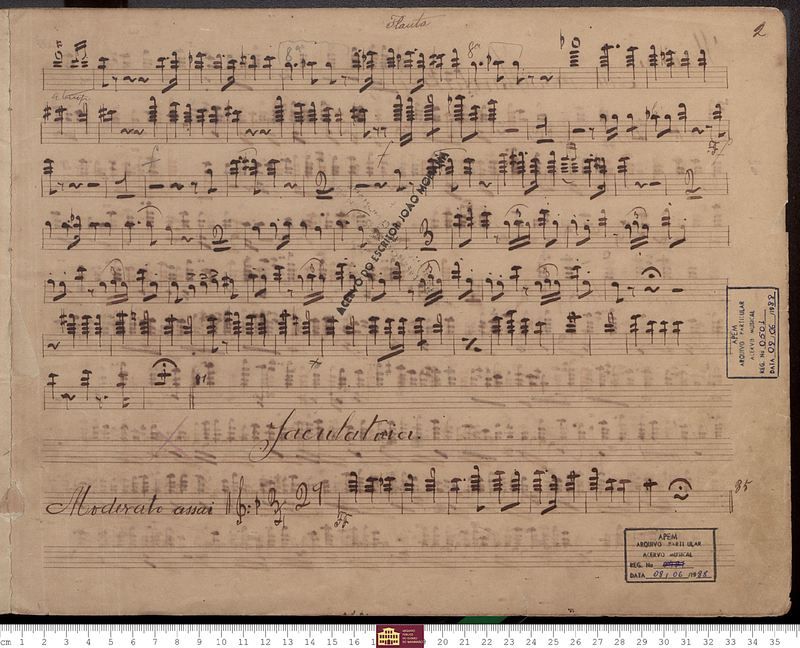 Flauta
2
8ª
8ª
f
f
FF
2
2
2
3
ACERVO DO ESCRITOR JOÃO MOHANA
APEM
ARQUIVO PARTICULAR
ACERVO MUSICAL
REG. No 0501
DATA 09 06 /1988
Jaculatoria.
Moderato assai
29
FF
85
APEM
ARQUIVO PARTICULAR
ACERVO MUSICAL
REG. No
DATA 09 / 06 /1988
cm 1 2 3 4 5 6 7 8 9 10 11 12 13 14 15 16 20 21 22 23 24 25 26 27 28 29 30 31 32 33 34 35